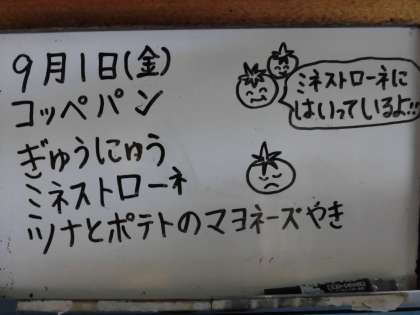 9月1日(金)
コッペパン
ぎゅうにゅう
ミネストローネ
ツナとポテトのマヨネーズやき
ミネストローネに
はいっているよ!!